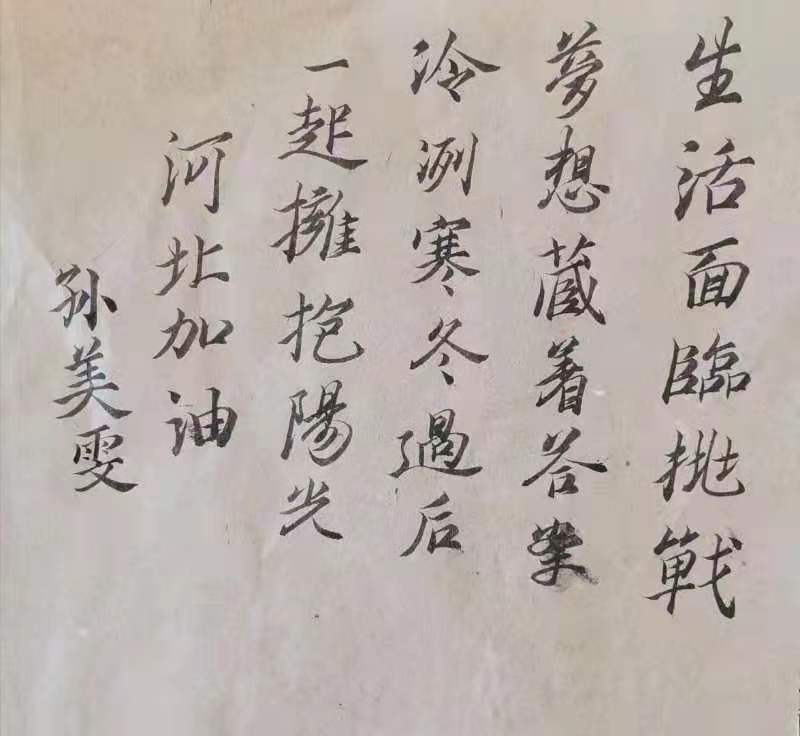 生活面臨挑戰
夢想蔵着答案
冷冽寒冬過后
一起擁抱陽光
河北加油
孙美雯